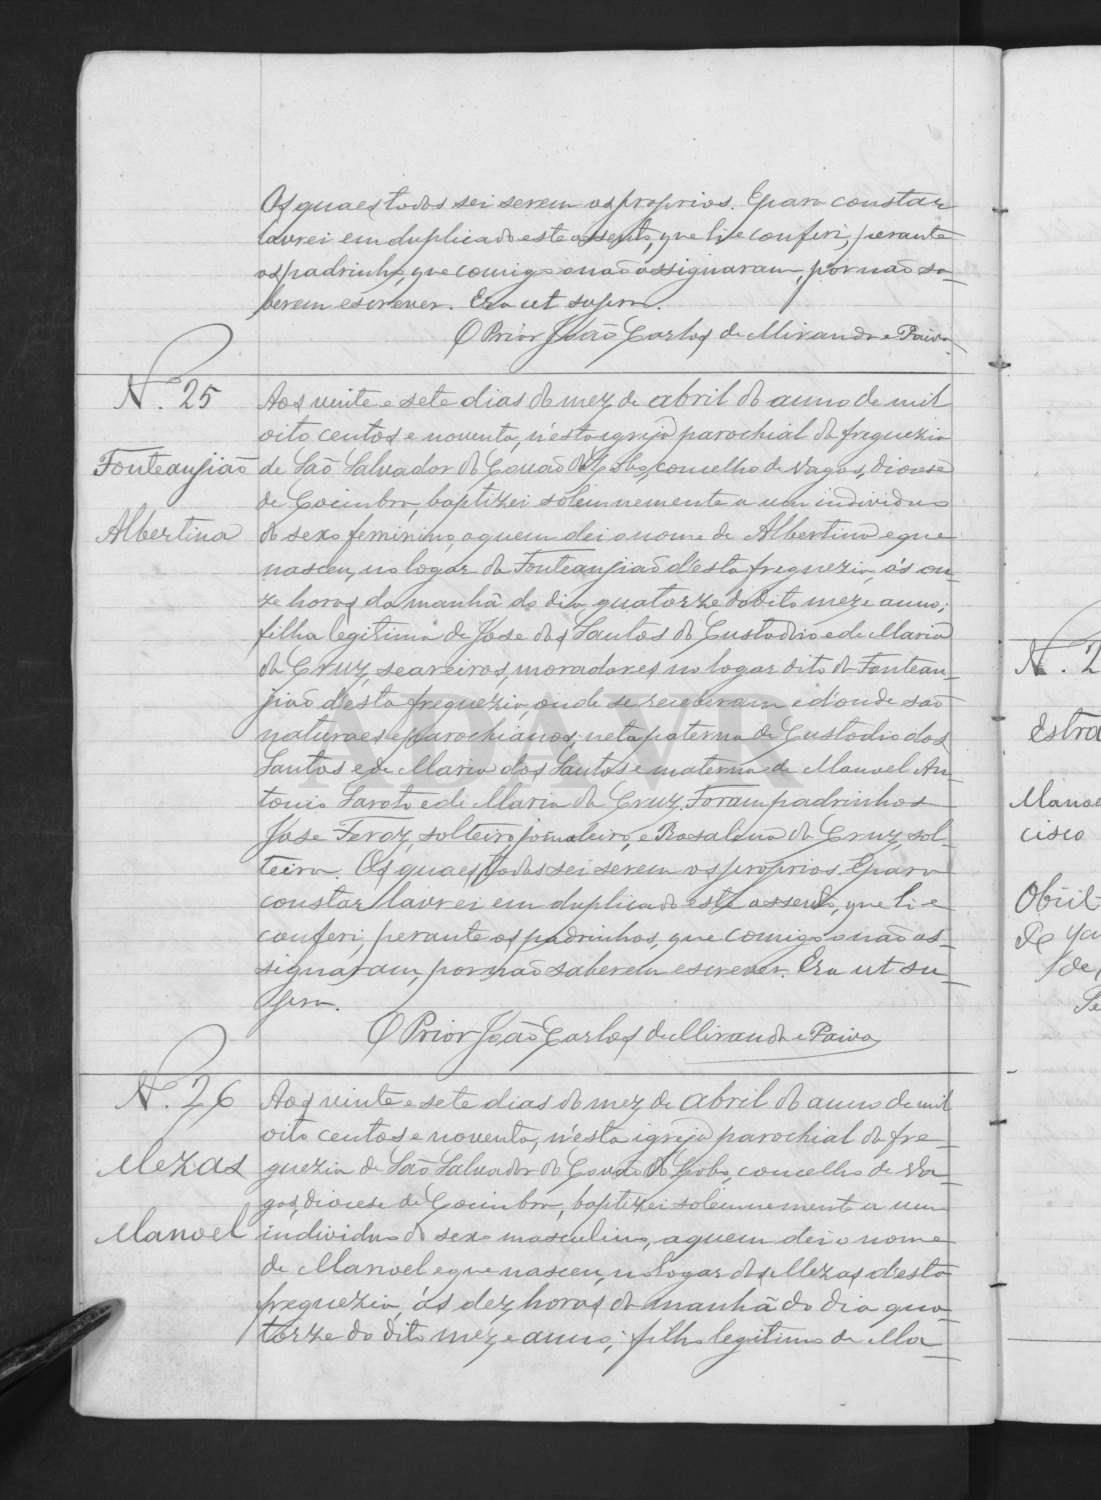 Os quaes todos sei serem os proprios. E para constar
lavrei em duplicado este assento, que li e conferi, perante
os padrinhos, que comigo o não assignaram, por não sa-
berem escrever. Era ut supra.
O Prior João Carlos de Miranda e Paiva
N. 25
Aos vinte e sete dias do mez de abril do anno de mil
oito centos e noventa, n'esta igreja parochial da freguezia
Fonteanjião
de São Salvador do Covão do Lobo, concelho de Vagos, diocese
de Coimbra, baptizei solemnemente a um individuo
Albertina
do sexo feminino, a quem dei o nome de Albertina e que
nasceu, no logar da Fonteanjião d'esta freguezia, ás on-
ze horas da manhã do dia quatorze do dito mez e anno;
filha legitima de Jose dos Santos do Custodio e de Maria
da Cruz, seareiros, moradores no logar dito da Fontean-
jião d'esta freguezia, onde se receberam e donde são
naturaes e parochianos; neta paterna de Custodio dos
Santos e de Maria dos Santos e materna de Manoel An-
tonio Saroto e de Maria da Cruz. Foram padrinhos
Jose Feroz, solteiro, jornaleiro, e Rosalina da Cruz, sol-
teira. Os quaes todos sei serem os proprios. E para
constar lavrei em duplicado este assento, que li e
conferi, perante os padrinhos, que comigo o não as-
signaram, por não saberem escrever. Era ut su-
pra.
O Prior João Carlos de Miranda e Paiva
N. 26
Aos vinte e sete dias do mez de abril do anno de mil
oito centos e noventa, n'esta igreja parochial da fre-
Mezas
guezia de São Salvador do Covão do Lobo, concelho de Va-
gos, diocese de Coimbra, baptizei solemnemente a um
Manoel
individuo do sexo masculino, a quem dei o nome
de Manoel e que nasceu, no logar das Mezas d'esta
freguezia, ás dez horas da manhã do dia qua-
torze do dito mez e anno; filho legitimo de Ma-
N. 2
Estra
Manoe
cisco